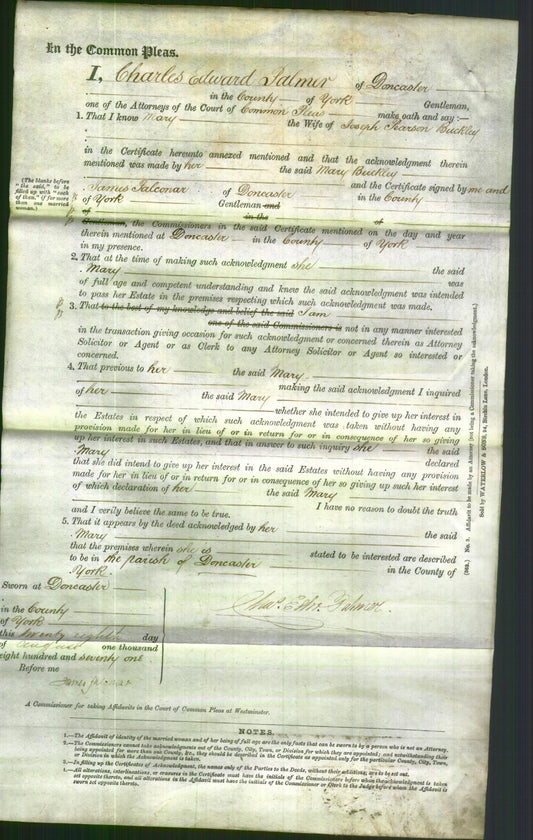 In the Common Pleas.
I, Charles Edward Palmer of Doncaster
in the County of York Gentleman,
one of the Attorneys of the Court of Common Pleas make oath and say :—
1. That I know Mary
the Wife of Joseph Pearson Buckley
in the Certificate hereunto annexed mentioned and that the acknowledgment therein
mentioned was made by her the said Mary Buckley
and the Certificate signed by me and
James Falconar of Doncaster in the County
of York Gentleman and
of in the of
Gentleman, the Commissioners in the said Certificate mentioned on the day and year
therein mentioned at Doncaster in the County of York
in my presence.
2. That at the time of making such acknowledgment she
Mary the said
was
of full age and competent understanding and knew the said acknowledgment was intended
to pass her Estate in the premises respecting which such acknowledgment was made.
3. That to the best of my knowledge and belief the said I am
one of the said Commissioners is not in any manner interested
in the transaction giving occasion for such acknowledgment or concerned therein as Attorney
Solicitor or Agent or as Clerk to any Attorney Solicitor or Agent so interested or
concerned.
4. That previous to her the said Mary
making the said acknowledgment I inquired
of her the said Mary
whether she intended to give up her interest in
the Estates in respect of which such acknowledgment was taken without having any
provision made for her in lieu of or in return for or in consequence of her so giving
up her interest in such Estates, and that in answer to such inquiry she the said
Mary declared
that she did intend to give up her interest in the said Estates without having any provision
made for her in lieu of or in return for or in consequence of her so giving up such her interest
of which declaration of her the said Mary
I have no reason to doubt the truth
and I verily believe the same to be true.
5. That it appears by the deed acknowledged by her
Mary the said
that the premises wherein she is stated to be interested are described
to be in the parish of Doncaster in the County of
York.
Sworn at Doncaster
in the County
of York
this twenty eighth day
of August one thousand
eight hundred and seventy one
Before me
James Falconar
Chas. Edw. Palmer
A Commissioner for taking Affidavits in the Court of Common Pleas at Westminster.
NOTES.
1.—The Affidavit of identity of the married woman and of her being of full age are the only facts that can be sworn to by a person who is not an Attorney.
2.—The Commissioners cannot take acknowledgments out of the County, City, Town, or Division for which they are appointed; and notwithstanding their
being appointed for more than one County, &c., they should be described in the Certificate as appointed only for the particular County, City, Town,
or Division in which the Acknowledgment is taken.
3.—In filling up the Certificates of Acknowledgment, the names only of the Parties to the Deeds, without their additions, are to be set out.
4.—All alterations, interlineations, or erasures in the Certificate must have the initials of the Commissioners before whom the acknowledgment is taken
set opposite thereto, and all alterations in the Affidavit must have the initials of the Commissioner or Clerk to the Judge before whom the Affidavit is
sworn set opposite thereto.
(The blanks before
"the said," to be
filled up with "each
of them," if for more
than one married
woman.)
(363.) No. 3. Affidavit to be made by an Attorney (not being a Commissioner taking the acknowledgment.)
Sold by WATERLOW & SONS, 24, Birchin Lane, London.